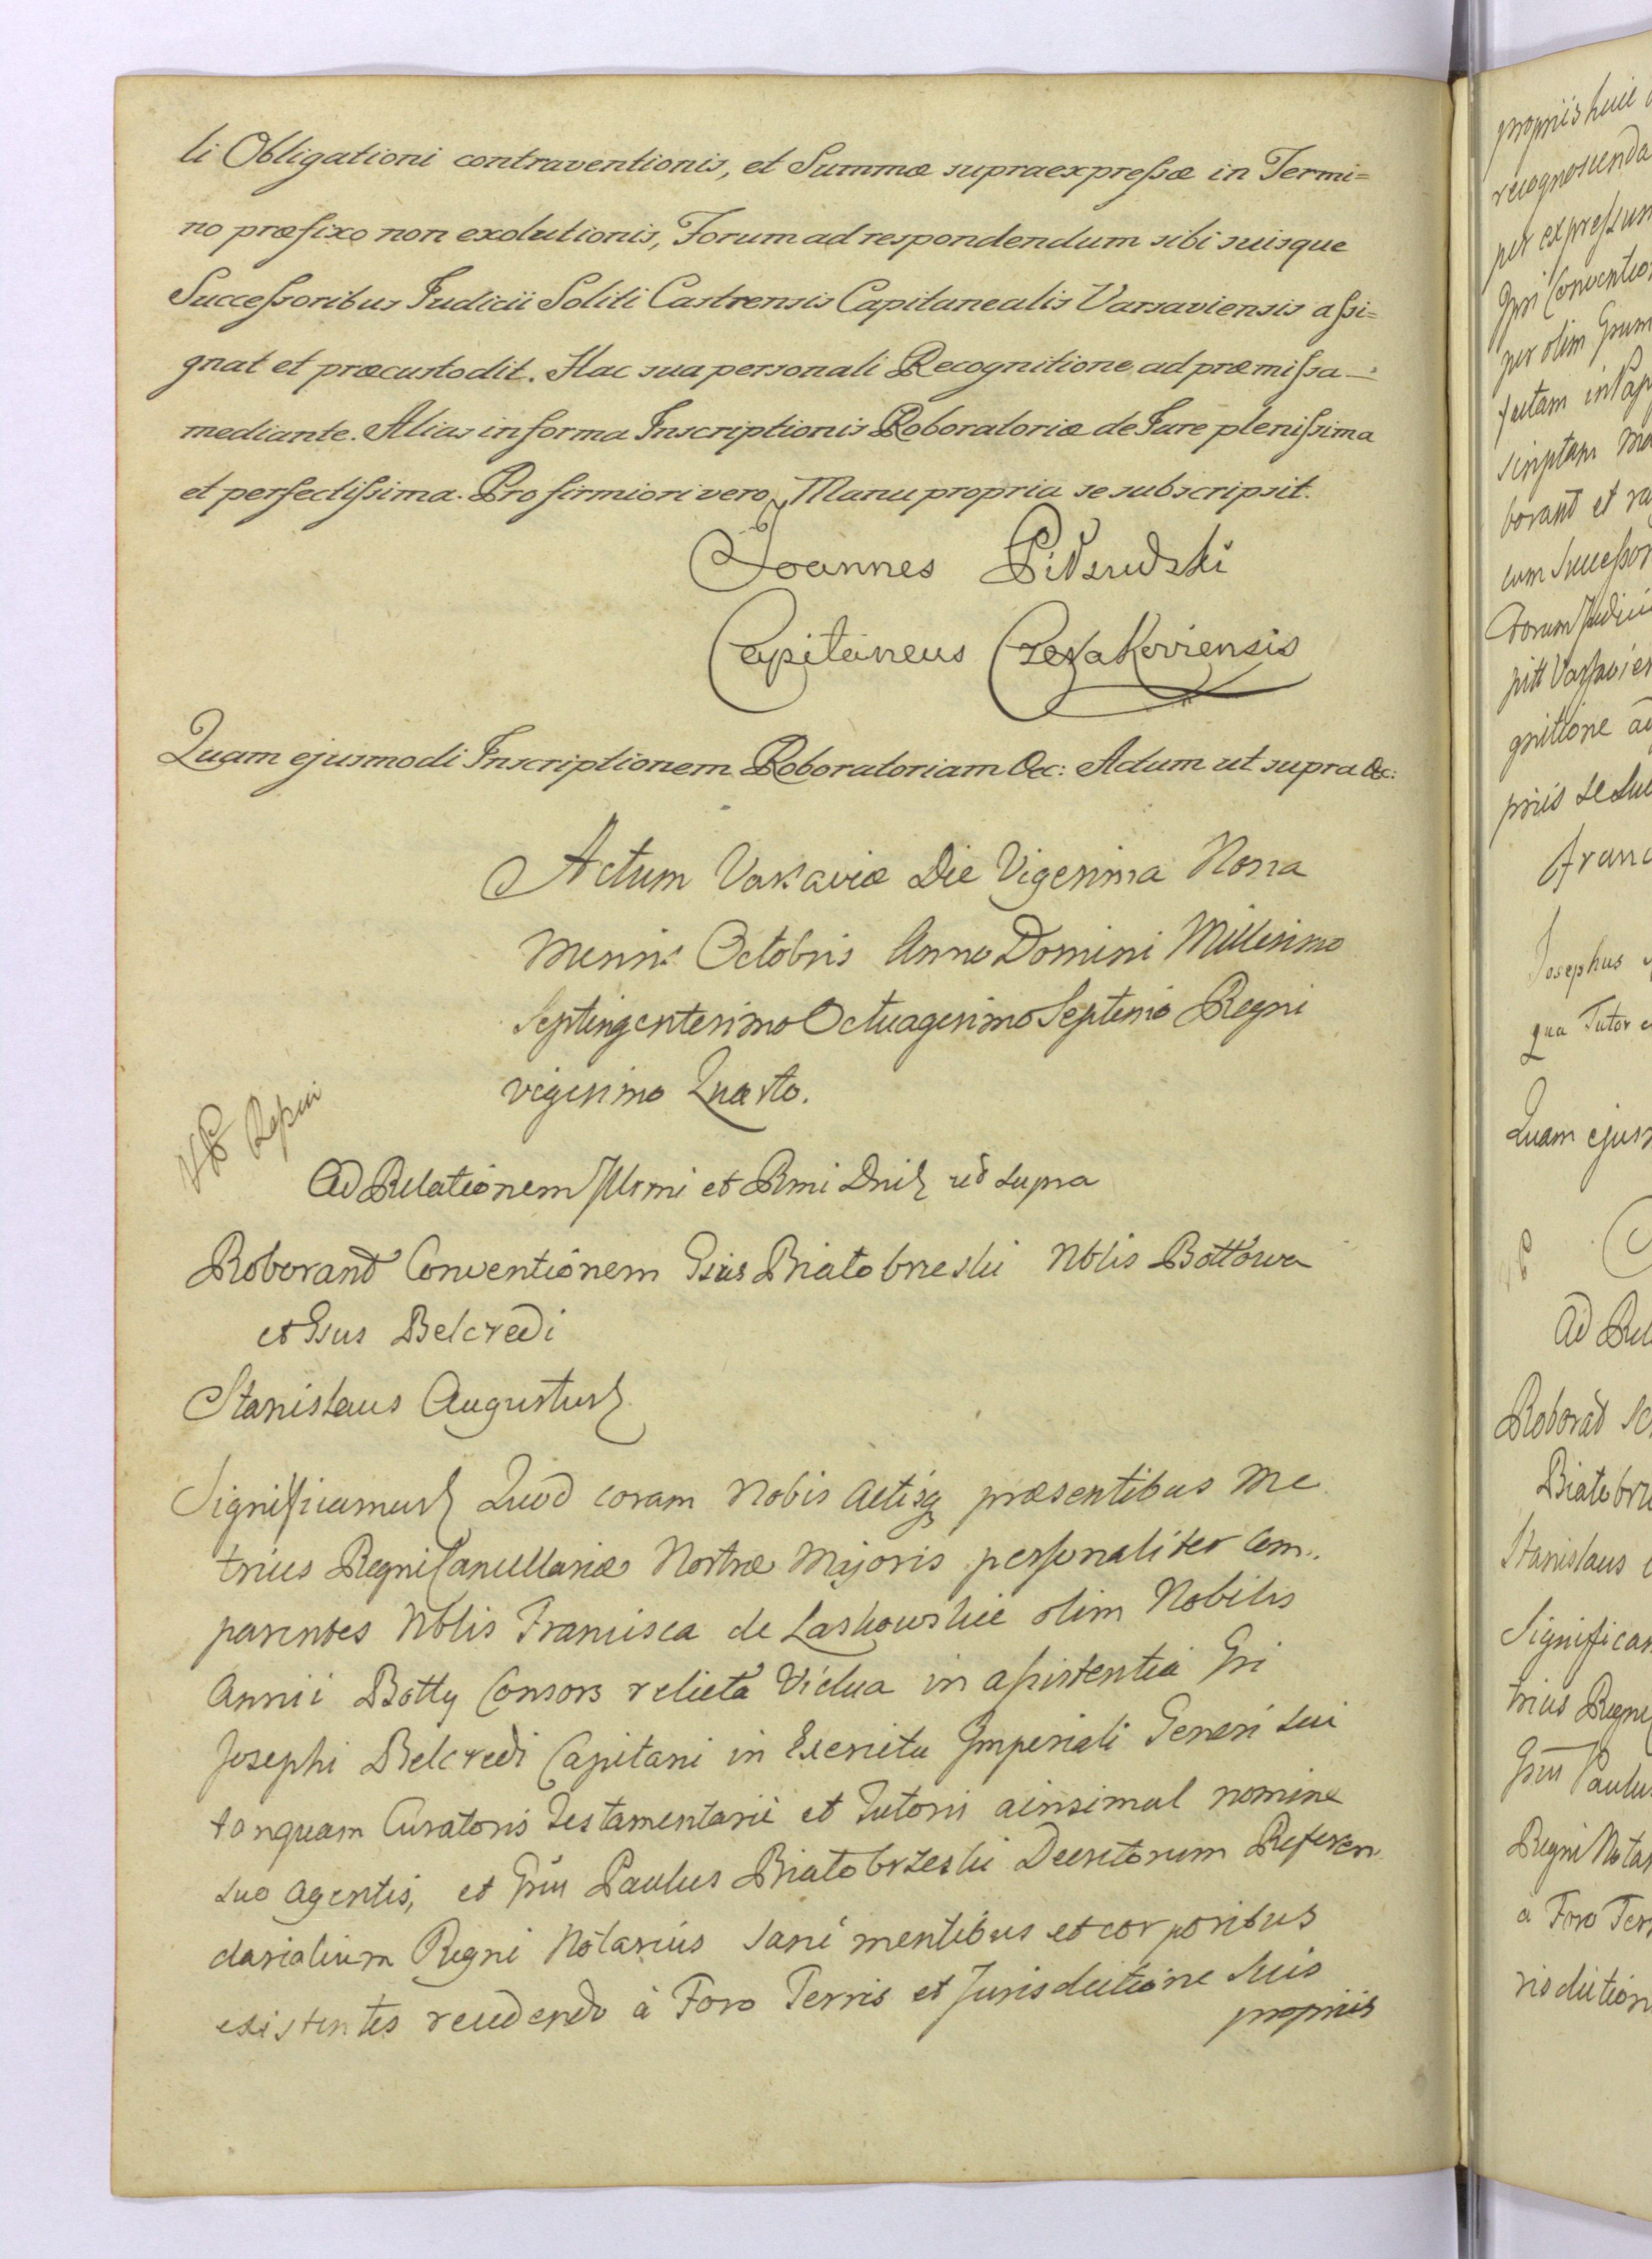 li Obligationi contraventionis, et Summæ supraexpressæ in Termi=
no præfixo non exolutionis, Forum ad respondendum sibi suisque
Successoribus Judicii Soliti Castrensis Capitanealis Varsaviensis assi=
gnat et præcustodit. Hac sua personali Recognitione ad præmissa
mediante. Alias in forma Inscriptionis Roboratoriæ de Jure plenissima
et perfectissima. Pro firmiori vero Manu propria se subscripsit.
Joannes
Capitaneus
Quam ejusmodi Inscriptionem Roboratoriam &c: Actum ut supra &c:
Actum Varsaviæ Die Vigesima Nona
Mensis Octobris Anno Domini Millesimo
Septingentesimo Octuagesimo Septimo Regni
vigesimo Quarto.
Ad Relationem Illrmi et Rmi Dni ut supra
Roborant Conventionem Gsus Białobrzeski Nblis Bottowa
et Gsus Belcredi
Stanislaus Augustus
Significamus Quod coram Nobis Actisq præsentibus Me
trices Regni Cancellariæ Nostræ Majoris personaliter Com
parentes Nblis Francisca de Laskowskie olim Nobilis
Annii Botty Consors relicta Vidua in assistentia Gsi
Josephi Belcredi Capitani in Exercitu Imperiali Generi sui
tanquam Curatoris Testamentarii et Tutoris ac insimul nomine
suo agentis, et Gsus Paulus Białobrzeski Decretorum Referen
darialium Regni Notarius sani mentibus et corporibus
existentes recedendo à Foro Terris et Jurisdictione Suis
propriis
propriis huic
recognoscenda
per expressum
Gsi Convention
per olim Gsum
factam in
scriptam
borant et
cum Successor
Forum Judicii
pitt Varsavien
gnitione ad
priis se su
Franc
Josephus
qua Tutor
Quam ejusm
Ad Rel
Roborat
Białobrz
Stanislaus
Significam
trices Regni
Gsus Paulus
Regni Notar
à Foro Terr
risdiction